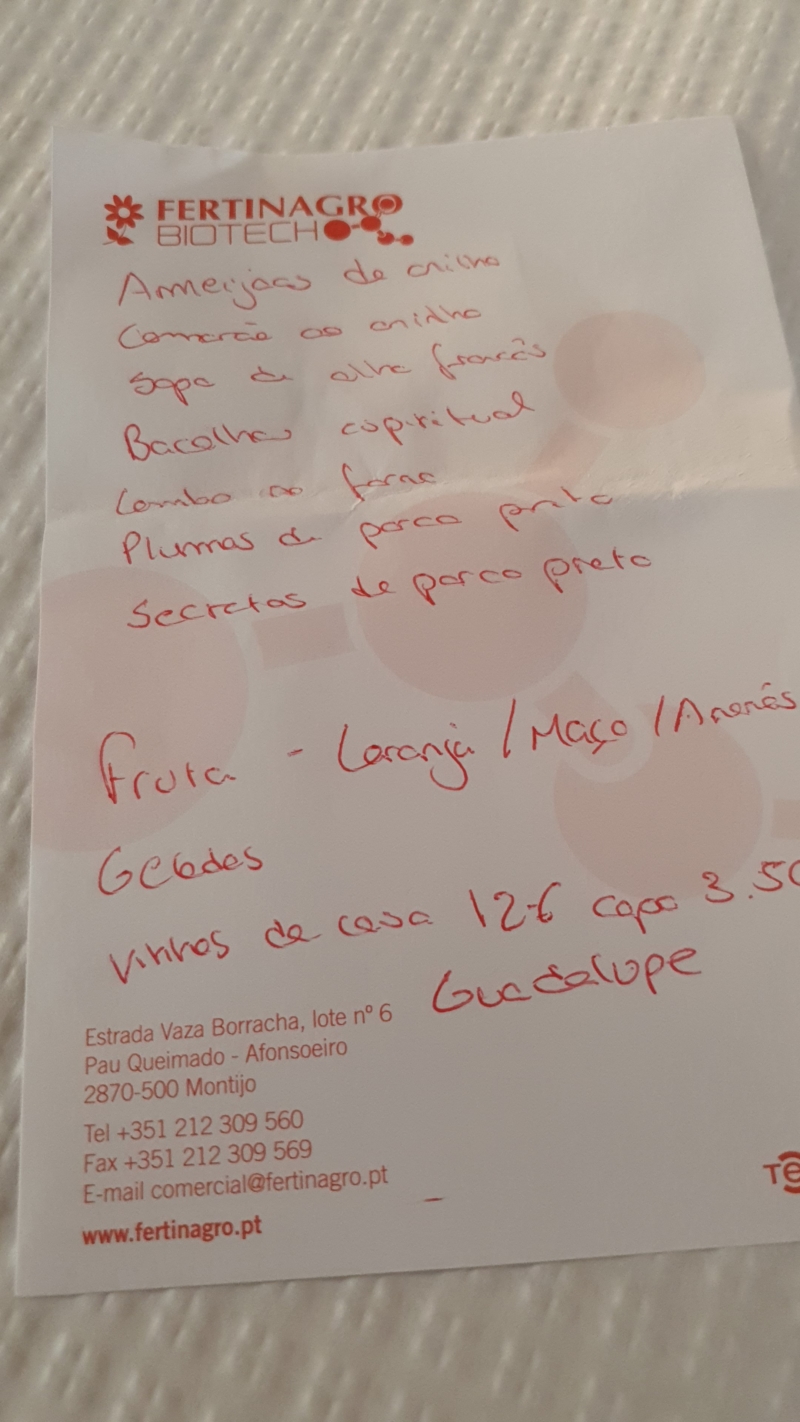 FERTINAGRO
BIOTECH
Ameijoas de
Camarão ao
Sopa de alho francês
Bacalhau espiritual
Lombo ao forno
Plumas de porco preto
Secretos de porco preto
Fruta - Laranja / Maça / Ananás
Gelados
Vinhos da casa 12€ copo 3.50
Guadalupe
Estrada Vaza Borracha, lote nº 6
Pau Queimado - Afonsoeiro
2870-500 Montijo
Tel +351 212 309 560
Fax +351 212 309 569
E-mail comercial@fertinagro.pt
www.fertinagro.pt